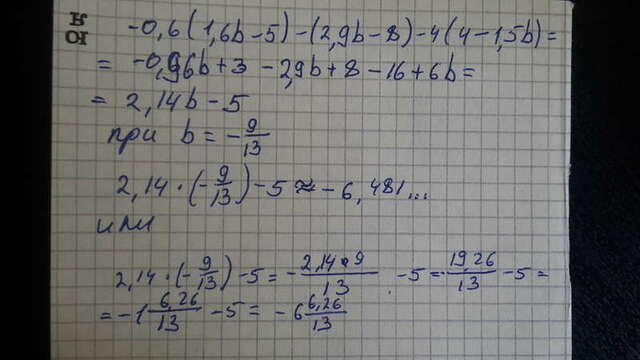 -0,6(1,6b-5)-(2,9b-8)-4(4-1,5b)=
= -0,96b+3-2,9b+8-16+6b=
= 2,14b-5
при b = -9/13
2,14·(-9/13)-5≈-6,481...
или
2,14·(-9/13)-5=-2,14·9/13 -5=-19,26/13-5=
=-1 6,26/13 -5= -6 6,26/13